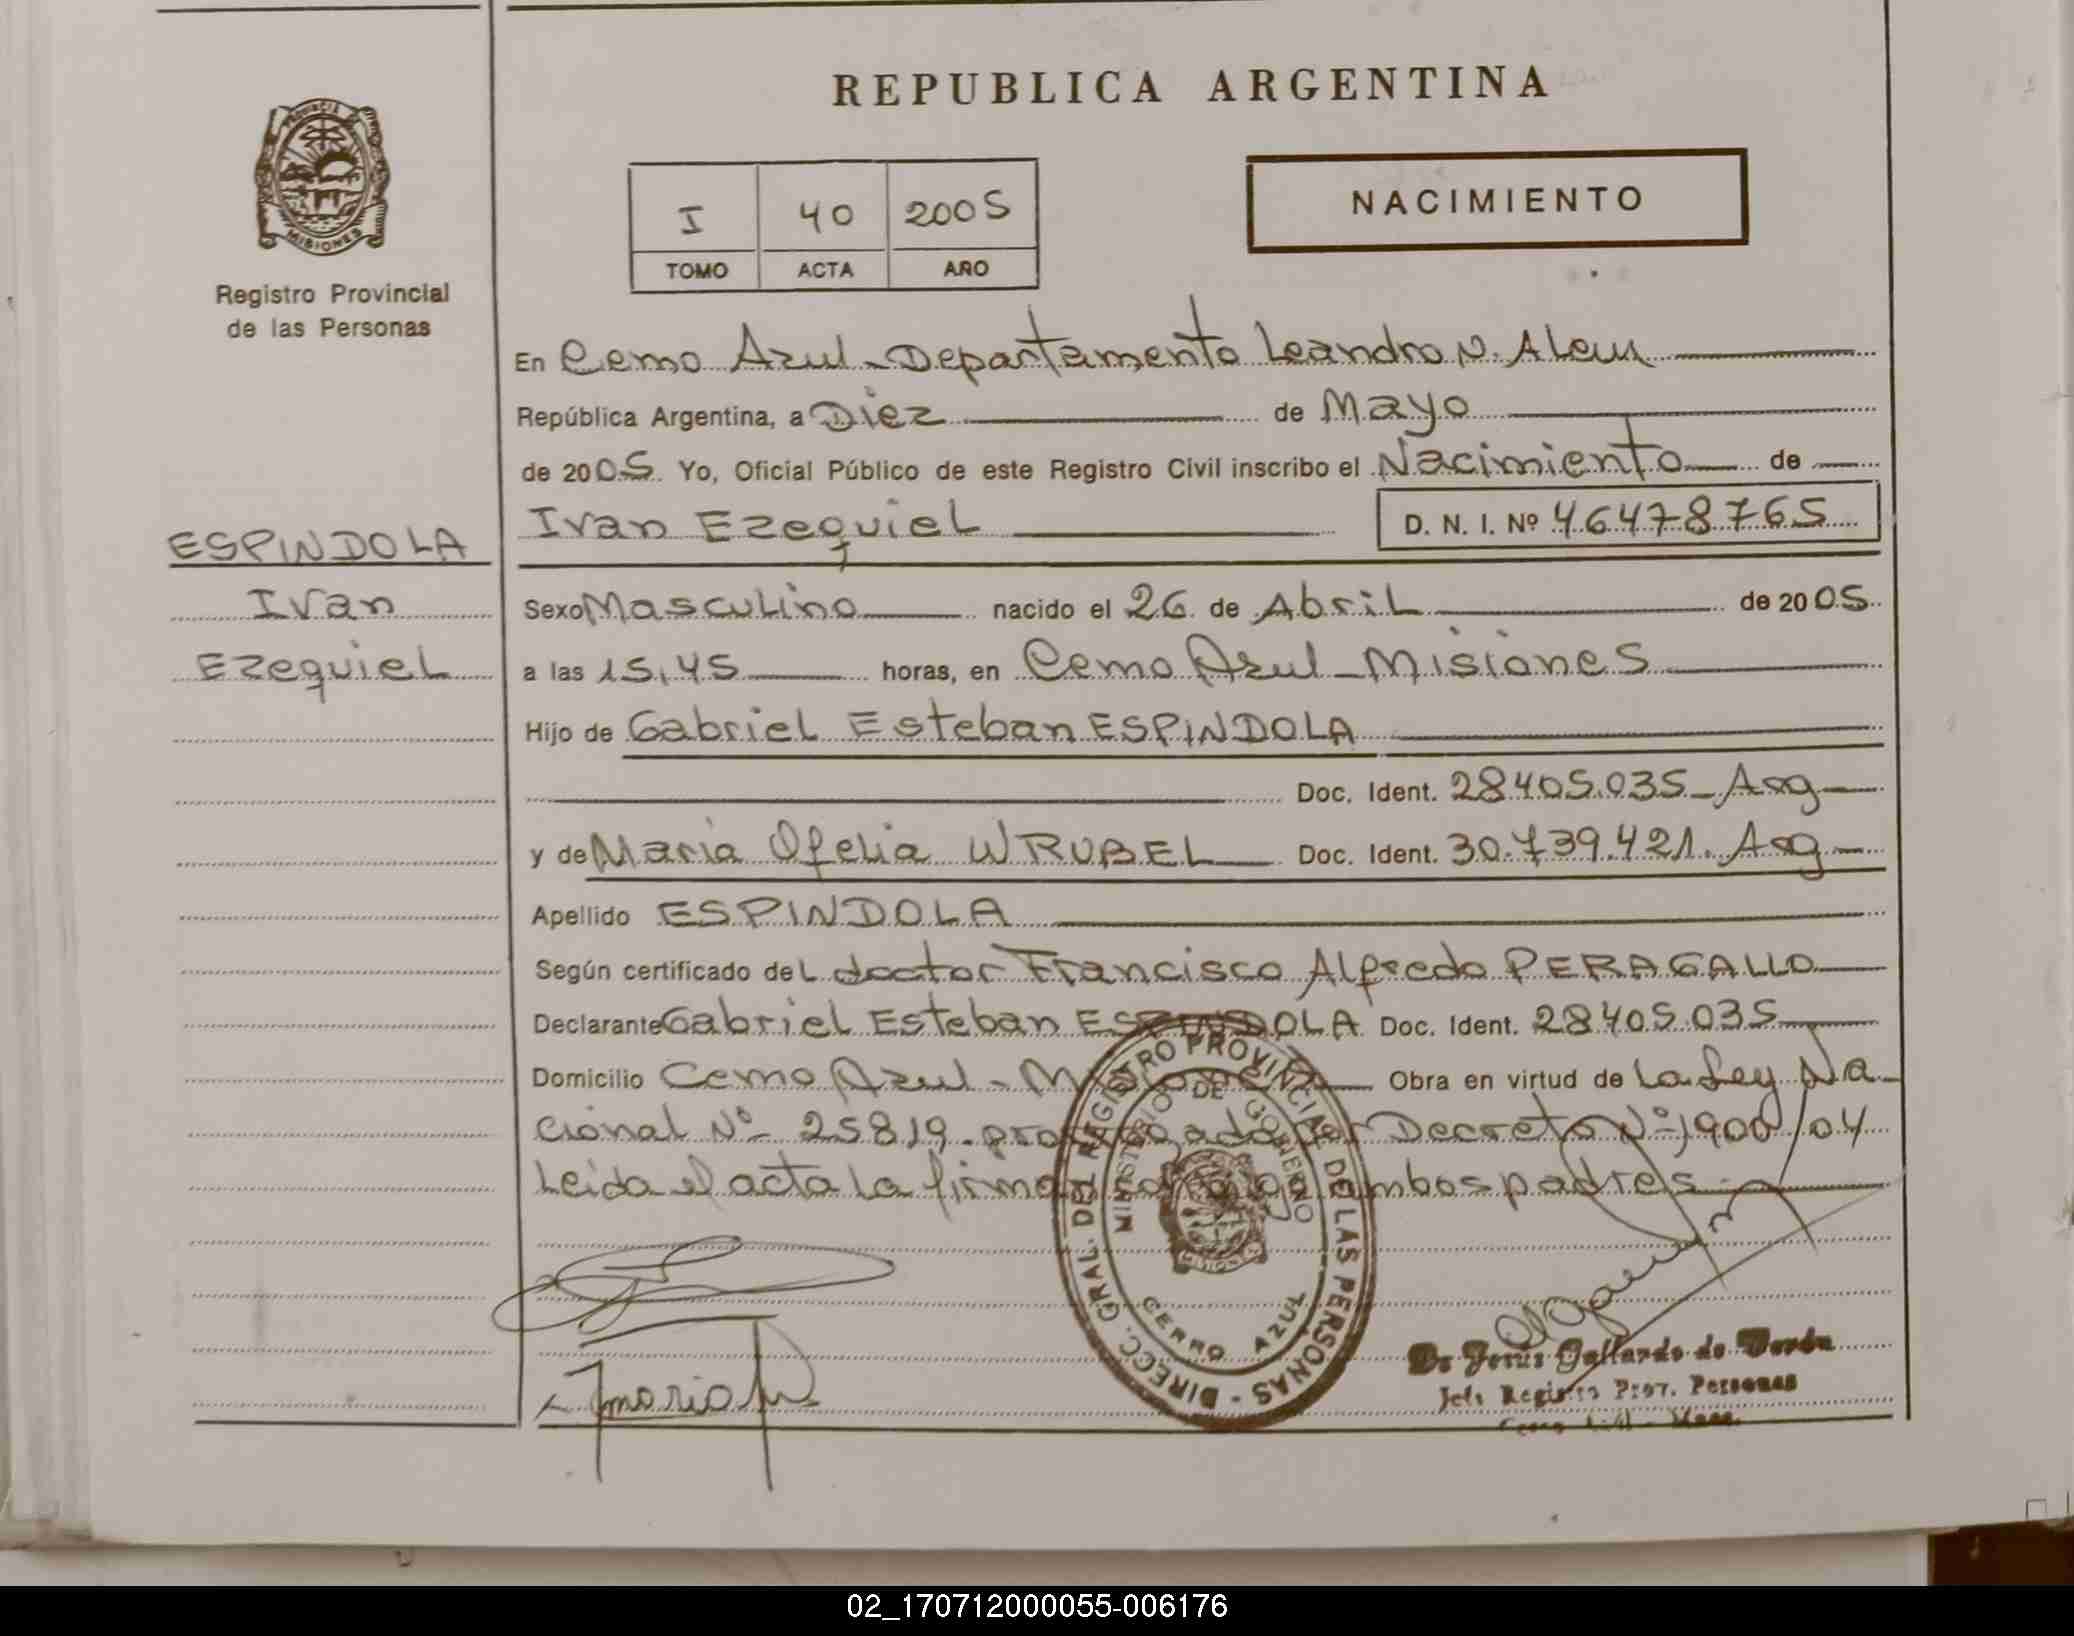 REPUBLICA ARGENTINA
PROVINCIA DE
MISIONES
Registro Provincial
de las Personas
I 40 2005
TOMO ACTA AÑO
NACIMIENTO
En Cerro Azul - Departamento Leandro N. Alem
República Argentina, a Diez de Mayo
de 2005. Yo, Oficial Público de este Registro Civil inscribo el Nacimiento de
Ivan Ezequiel D. N. I. Nº 46478765
ESPINDOLA
Ivan
Ezequiel
Sexo Masculino nacido el 26 de Abril de 2005
a las 15,45 horas, en Cerro Azul - Misiones
Hijo de Gabriel Esteban ESPINDOLA
Doc. Ident. 28405.035 - Arg
y de Maria Ofelia WRUBEL Doc. Ident. 30.739.421. Arg
Apellido ESPINDOLA
Según certificado del doctor Francisco Alfredo PERAGALLO
Declarante Gabriel Esteban ESPINDOLA Doc. Ident. 28405.035
Domicilio Cerro Azul - Misiones Obra en virtud de La Ley Na-
cional Nº 25819. por Decreto Nº 1900/04
Leida el acta la firman ambos padres
DIRECC. GRAL. DEL REGISTRO PROVINCIAL DE LAS PERSONAS
MINISTERIO DE GOBIERNO
MISIONES
CERRO AZUL
Jesús Gallardo de
Jefe Registro Prov. Personas
Cerro Azul - Mnes.
02_170712000055-006176